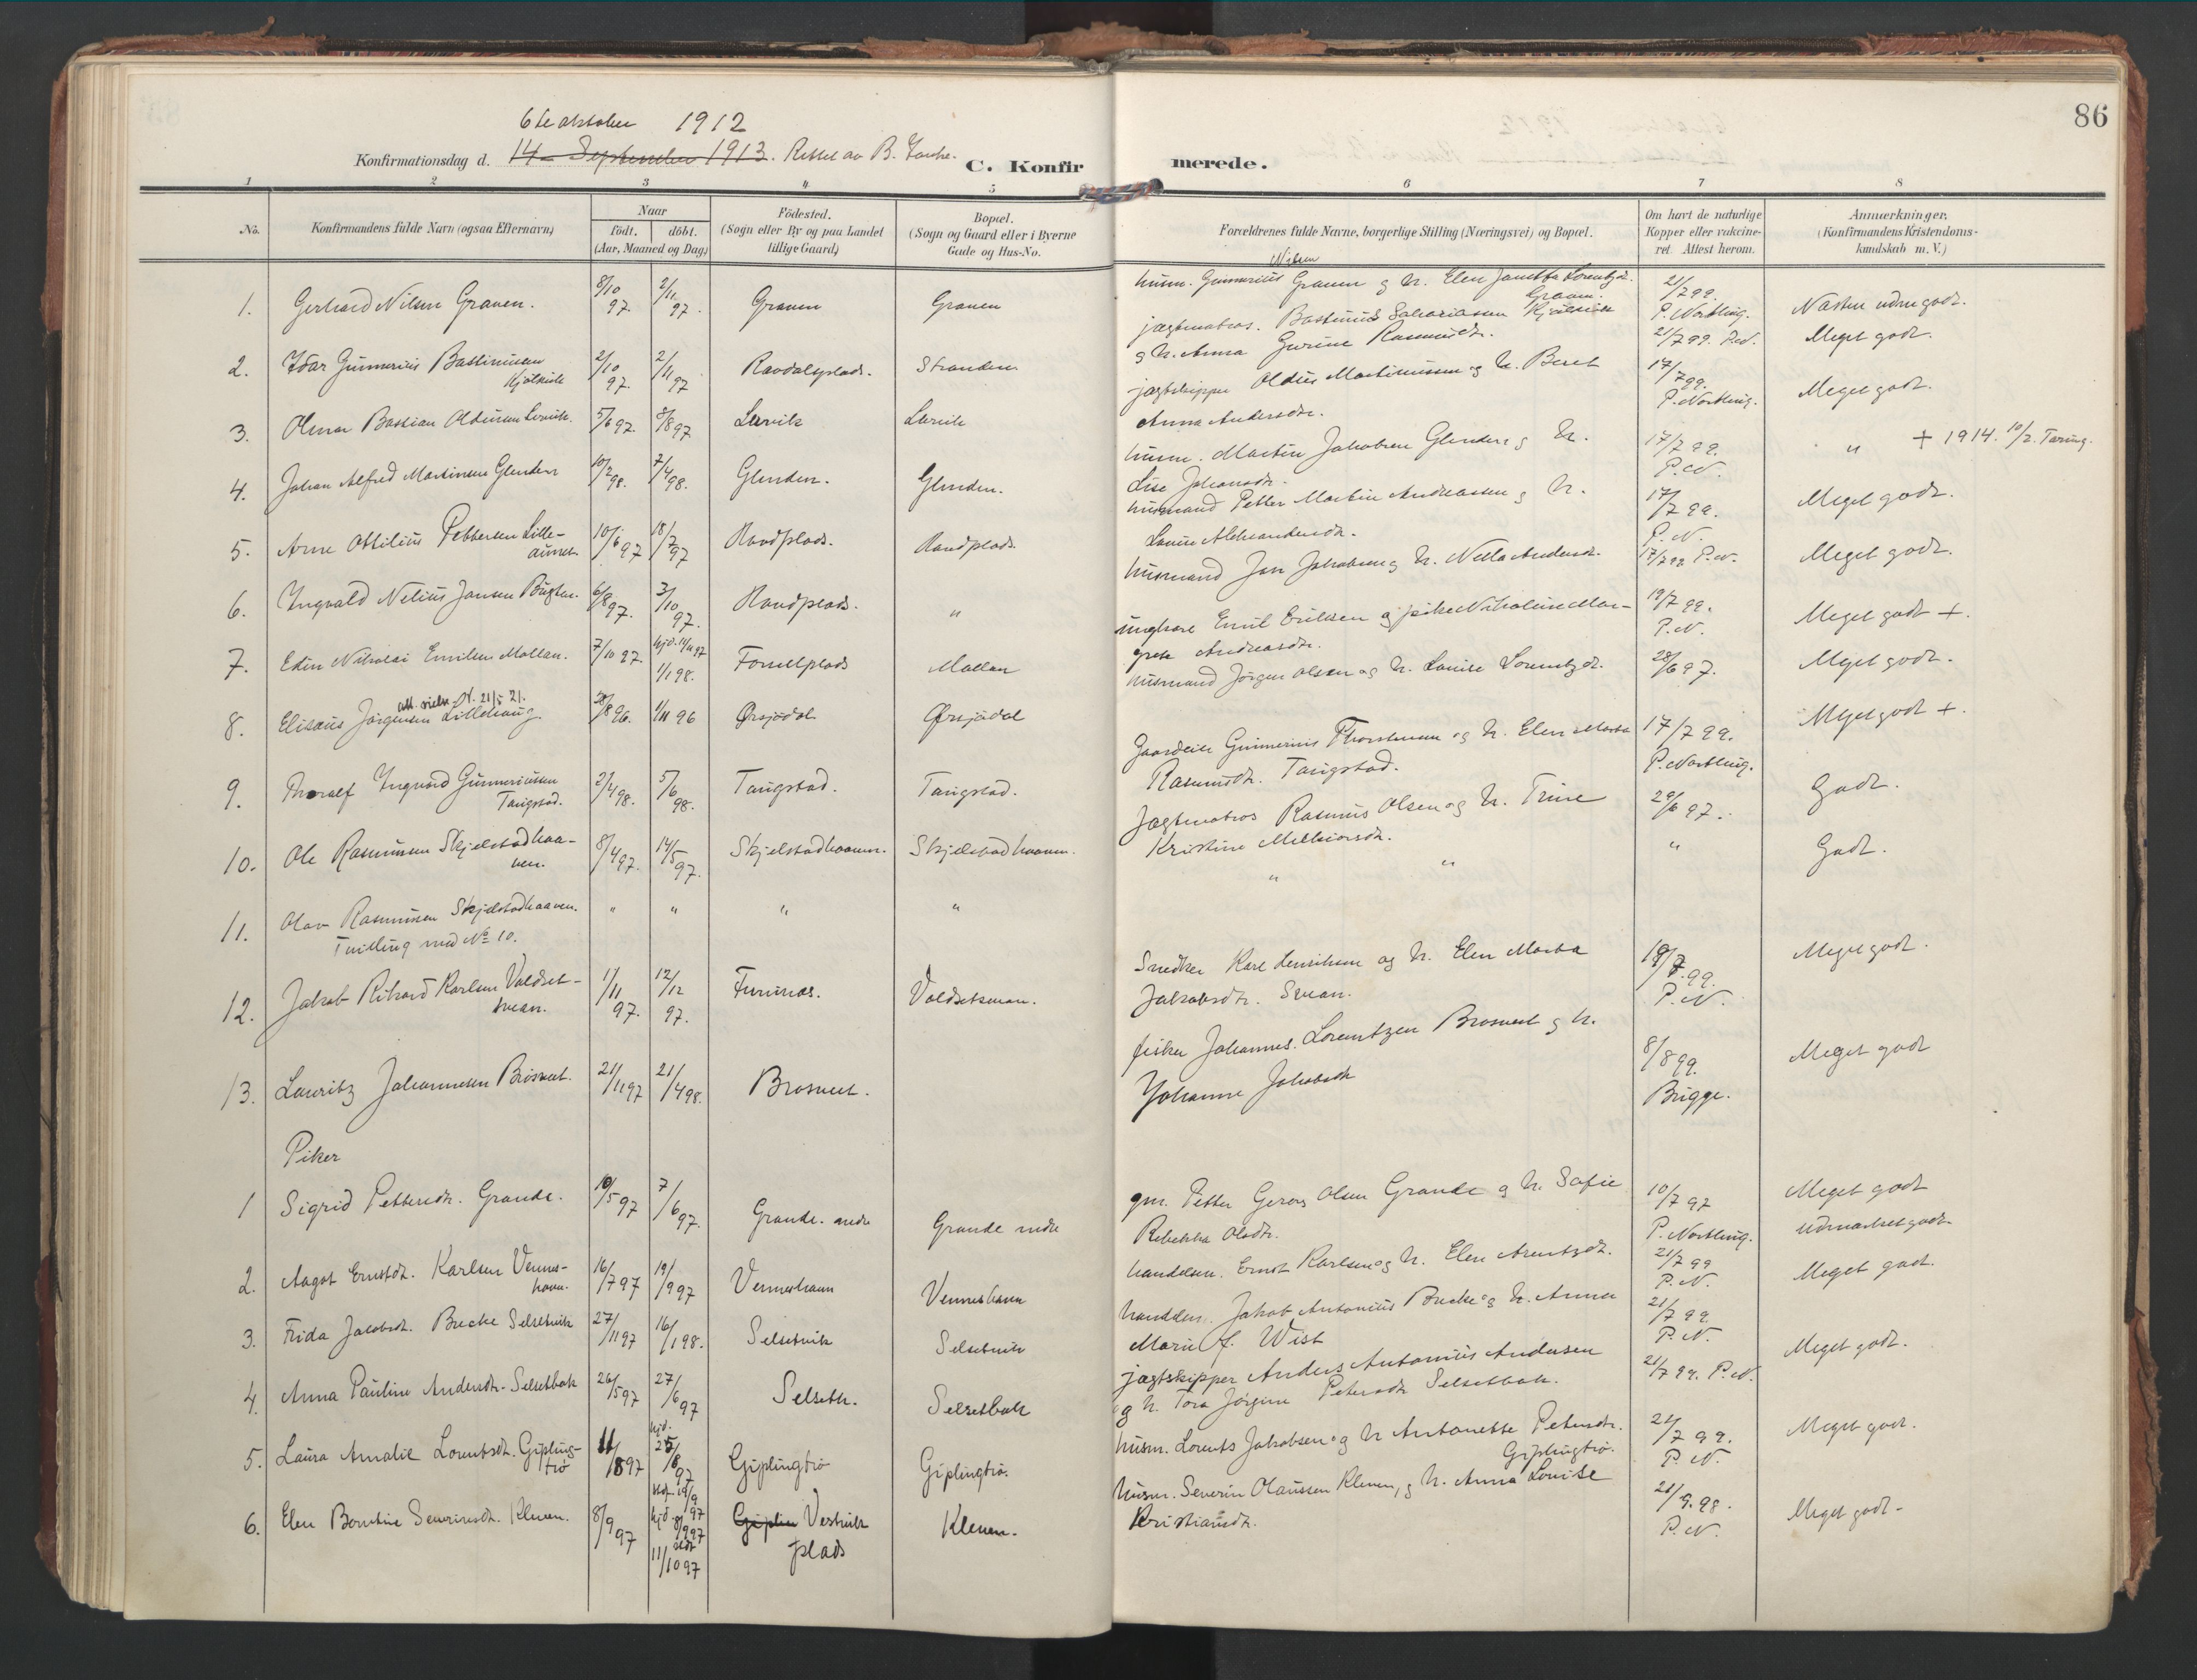 86
6te oktober 1912
Konfirmationsdag d. 14 September 1913. Rettet av B.
C. Konfirmerede.
1 2 3 4 5 6 7 8
No.
Konfirmandens fulde Navn (ogsaa Efternavn)
Naar
födt. döbt.
(Aar, Maaned og Dag)
Födested.
(Sogn eller By og paa Landet
tillige Gaard)
Bopæl.
(Sogn og Gaard eller i Byerne
Gade og Hus-No.
Forældrenes fulde Navne, borgerlige Stilling (Næringsvei) og Bopæl.
Om havt de naturlige
Kopper eller vakcine-
ret. Attest herom.
Anmærkninger.
(Konfirmandens Kristendoms-
kundskab m. V.)
1. Gerhard Nilsen Granen. 8/10 97. 2/11 97. Granen Granen
Nilsen
husm. Gunnerius Granen og h. Elen Lorentzd. Granen. 21/7 99. P. Norbling. Næsten udm godt.
2. Idar Gunnerius Bastiansen 2/10 97. 2/11 97 Ravdalsplads. Stranden
jagtmatros. Sakariassen
og h. Anna Gurine Rasmusdr. 21/7 99. P.N. Meget godt.
3. Olmar Bastian Oldusen Lervik. 5/6 97. 8/8 97 Lervik Lervik
jagtskipper Oldus Martinussen og h. Beret
Anna Andersdr. 17/7 99. P. Norbling. Meget godt.
4. Johan Alfred Martinsen Glenden 10/2 98. 7/4 98. Glenden. Glenden.
husm. Martin Jakobsen Glenden og h.
Lise Johansdr. 17/7 99. P.N. " + 1914. 10/2. Tæring.
5. Arne Ottilius Pettersen Lille-
aunet 10/6 97 18/7 97 Ravdplads. Ravdplads.
husmand Petter Martin Andreassen og h.
17/7 99. P.N. Meget godt.
6. Ingvald Nelius Jansen 6/8 97. 3/10 97. Ravdplads. "
husmand Jan Jakobsen og h. Andersdr. 17/7 99 P.N. Meget godt.
7. Edin Nikolai Emilsen Mollan. 7/10 97. hjd. 14/11 97 1/1 98. Mollan
ungkare Emil Eriksen og pike Nikoline Mar-
grete Andreasdr. 19/7 99. P.N. Meget godt +.
att. 21/5 21.
8. Eliseus Jørgensen Lillehaug. 8 96. 1/11 96 Ørsjødal Ørsjødal
husmand Jörgen Olsen og h. Louise Lorentzdr. 28/6 97. Meget godt.
9. Thoralf Ingvard Gunneriussen
Taugstad. 2/4 98. 5/6 98. Taugstad. Taugstad.
Gaardeier Gunnerius Thorstensen og h. Elen Marta
Rasmusdr. Taugstad. 17/7 99. P. Norbling. Meget godt +.
10. Ole Rasmussen Skjelstadhaa-
ven. 8/4 97. 14/5 97. Skjelstadhaaven. Skjelstadhaaven.
Jagtmatros Rasmus Olsen og h. Trine
Kristine Melkiorsdr. 29/6 97. Godt.
11. Olav Rasmussen Skjelstadhaaven. " " " " " " " Godt.
Tvilling med No 10.
12. Jakob Rikard Karlsen Valdset-
svean. 1/11 97. 12/12 97. Furunes. Valdsetsvean.
Snedker Karl Henriksen og h. Elen Marta
Jakobsdr. Svean. 19/7 99. P.N. Meget godt.
13. Lauritz Johannesen Brosveet. 21/11 97 21/4 98. Brosveet.
fisker Johannes Lorentzen Brosveet og h.
Johanne Jakobsdr 8/8 99. Brügge. Meget godt
Piker
1 Sigrid Pettersdr. Grande. 10/5 97 7/6 97. Grande nedre Grande nedre
gm. Petter Olsen Grande og h. Sofie
Rebekka Olsdr. 10/7 97 P. Norbling. Meget godt
2. Aagot Ernstdr. Karlsen Vennes-
havn. 16/7 97 19/9 97 Venneshavn Venneshavn
handelsm. Ernst Karlsen og h. Elen Arentzdr. 21/7 99 P.N. udmerket godt
3. Frida Jacobsdr. Brekke Selsetvik 27/11 97 16/1 98. Selsetvik Selsetvik
handelsm. Jakob Antonius Brekke og h. Anna
Marie f. Wist 21/7 99 P.N. Meget godt.
4. Anna Pauline Andersdr. Selsetbak 26/5 97 27/6 97 Selseth. Selsetbak
jagtskipper Anders Antonius Andersen
og h. Tora Jörgine Petersdr Selsetbak. 21/7 99. P.N. Meget godt.
5. Laura Amalie Lorentsdr. Gipling-
trö 11/8 97 hjd. 25/8 97 Giplingtrö Giplingtrö.
husm. Lorents Jakobsen og h Antonette Petersdr.
Giplingtrö. 21/7 99. P.N. Meget godt.
6. Elen Berntine Severinsdr. Kleven. 8/9 97 hjd. 8/9 97 stdf. 11/10 97 Giplin Vestvik
plads Kleven.
husm. Severin Olaussen Kleven, og h. Anna Louise
Kristiansdr. 21/9 98. P.N. Meget godt.